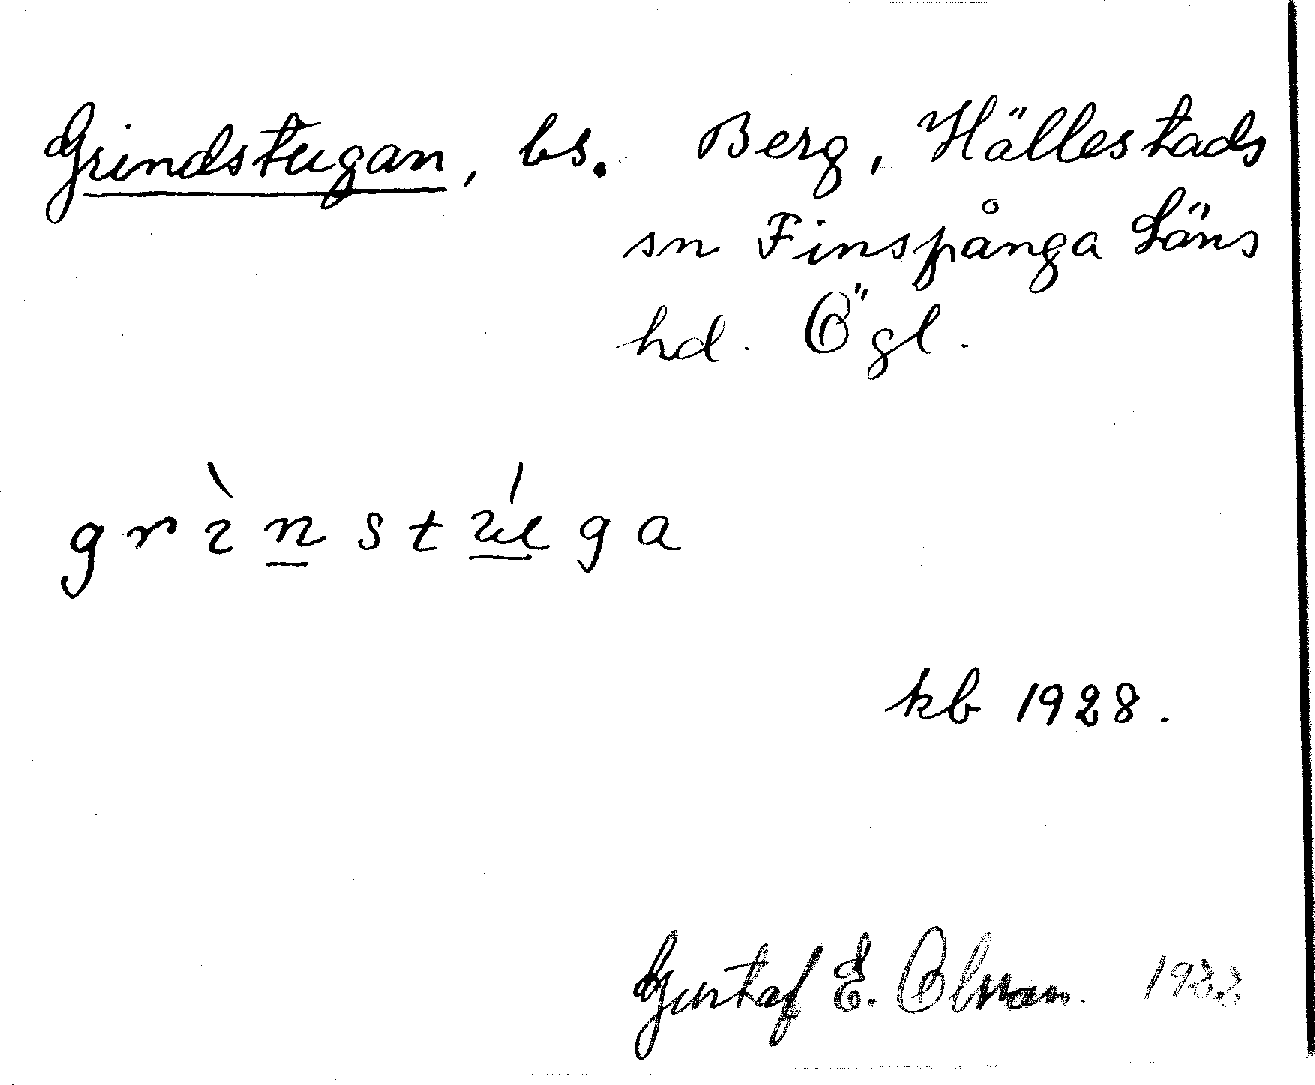 Grindstugan, bs. Berg, Hällestads
sn Finspånga Läns
hd. Ögl.
grìnstúga
kb 1928.
Gustaf E. Olsson.